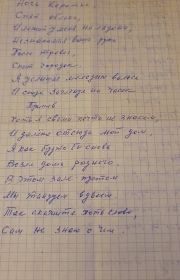 Ночь коротка
Спят облака,
И лежит у меня на ладони
Незнакомая ваша рука
После тревог
Спит городок.
Я услышал мелодию вальса
И сюда заглянул на часок
Припев
Хоть я с вами почти не знаком,
И далёко отсюда мой дом,
Я как будто бы снова
Возле дома родного.
В этом зале пустом
Мы танцуем вдвоём
Так скажите хоть слово,
Сам не знаю о чём.